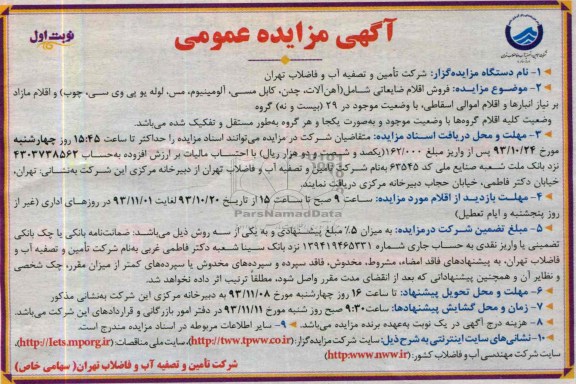 آگهی مزایده عمومی
نوبت اول
۱- نام دستگاه مزایده‌گزار: شرکت تأمین و تصفیه آب و فاضلاب تهران
۲- موضوع مزایـده: فروش اقلام ضایعاتی شـامل(آهن‌آلات، چدن، کابل مسـی، آلومینیوم، مس، لوله یو پی وی سـی، چوب) و اقلام مازاد
بر نیاز انبارها و اقلام اموالی اسقاطی، با وضعیت موجود در ۲۹ (بیست و نه) گروه
وضعیت کلیه اقلام گروه‌ها با وضعیت موجود و به‌صورت یکجا و هر گروه به‌طور مستقل و تفکیک شده می‌باشد.
۳- مهلت و محل دریافت اسـناد مزایده: متقاضیان شـرکت در مزایده می‌توانند اسناد مزایده را حداکثر تا ساعت ۱۵:۴۵ روز چهارشنبه
مورخ ۹۳/۱۰/۲۴ پس از واریز مبلغ ۱۶۲/۰۰۰(یکصد و شصت و دو هزار ریال) با احتساب مالیات بر ارزش افزوده به‌حساب ۴۳۰۳۷۳۸۵۶۲
نزد بانک ملت شـعبه صنایع ملی کد ۶۳۵۴۵ به‌نام شـرکت تأمین و تصفیه آب و فاضلاب تهران از دبیرخانه مرکزی این شرکت به‌نشانی: تهران،
خیابان دکتر فاطمی، خیابان حجاب دبیرخانه مرکزی دریافت نمایند.
۴- مهلـت بازدیـد از اقلام مورد مزایده: سـاعت ۹ صبح تا سـاعت ۱۵ از تاریـخ ۹۳/۱۰/۲۰ لغایت ۹۳/۱۱/۰۱ در روزهـای اداری (غیر از
روز پنجشنبه و ایام تعطیل)
۵- مبلغ تضمین شـرکت درمزایده: به میزان ۵٪ مبلغ پیشـنهادی و به یکی از سـه روش ذیل می‌باشد: ضمانت‌نامه بانکی یا چک بانکی
تضمینی یا واریز نقدی به حساب جاری شماره ۱۳۹۴۱۹۴۶۵۳۳۱ نزد بانک سـینا شـعبه دکتر فاطمی غربی به‌نام شرکت تأمین و تصفیه آب و
فاضلاب تهران، به پیشنهادهای فاقد امضاء، مشروط، مخدوش، فاقد سپرده و سپرده‌های مخدوش یا سپرده‌های کمتر از میزان مقرر، چک شخصی
و نظایر آن و همچنین پیشنهاداتی که بعد از انقضای مدت مقرر واصل شود، مطلقاً ترتیب اثر داده نخواهد شد.
۶- مهلت و محل تحویل پیشنهاد: تا ساعت ۱۶ روز چهارشنبه مورخ ۹۳/۱۱/۰۸ به دبیرخانه مرکزی این شرکت به‌نشانی مذکور
۷- زمان و محل گشایش پیشنهادها: ساعت ۹:۳۰ صبح روز شنبه مورخ ۹۳/۱۱/۱۱ در دفتر امور بازرگانی و قراردادهای این شرکت می‌باشد.
۸- هزینه درج آگهی در یک نوبت به‌عهده برنده مزایده می‌باشد. ۹- سایر اطلاعات مربوطه در اسناد مزایده مندرج است.
۱۰- نشانی‌های سایت اینترنتی به شرح ذیل: سایت شرکت مزایده‌گزار: (http://tww.tpww.co.ir)، سایت ملی مناقصات: (http://Iets.mporg.ir)،
سایت شرکت مهندسی آب و فاضلاب کشور: (http:www.nww.ir)
شرکت تأمین و تصفیه آب و فاضلاب تهران( سهامی خاص)
ParsNamadData